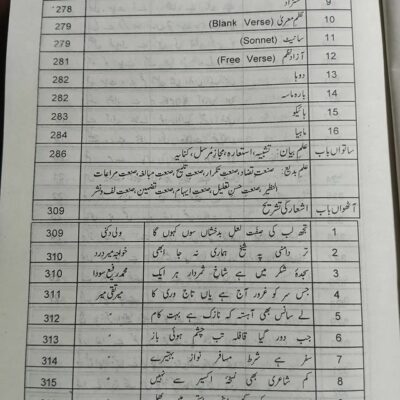 9 مستزاد 278
10 نظم معریٰ (Blank Verse) 279
11 سانیٹ (Sonnet) 279
12 آزاد نظم (Free Verse) 281
13 دوہا 282
14 بارہ ماسہ 282
15 ہائیکو 283
16 ماہیا 284
ساتواں باب علم بیان: تشبیہ، استعارہ، مجاز مرسل، کنایہ 286
علم بدیع: صنعت تضاد، صنعت تکرار، صنعت تلمیح، صنعت مبالغہ، صنعت مراعات
النظیر، صنعت حسن تعلیل، صنعت ایہام، صنعت تضمین، صنعت لف و نشر
آٹھواں باب اشعار کی تشریح 309
1 تجھ لب کی صفت لعل بدخشاں سوں کہوں گا ولی دکنی 309
2 تر دامنی پہ شیخ ہماری نہ جا ابھی خواجہ میر درد 310
3 سجدۂ شکر میں ہے شاخ ثمردار ہر ایک محمد رفیع سودا 310
4 جس سر کو غرور آج ہے یاں تاج وری کا میر تقی میر 311
5 لے سانس بھی آہستہ کہ نازک ہے بہت کام 〃 312
6 جب دور گیا قافلہ تب چشم ہوئی باز 〃 313
7 سفر ہے شرط مسافر نواز بہتیرے 314
8 کم شاعری بھی نسخۂ اکسیر سے نہیں 〃 315